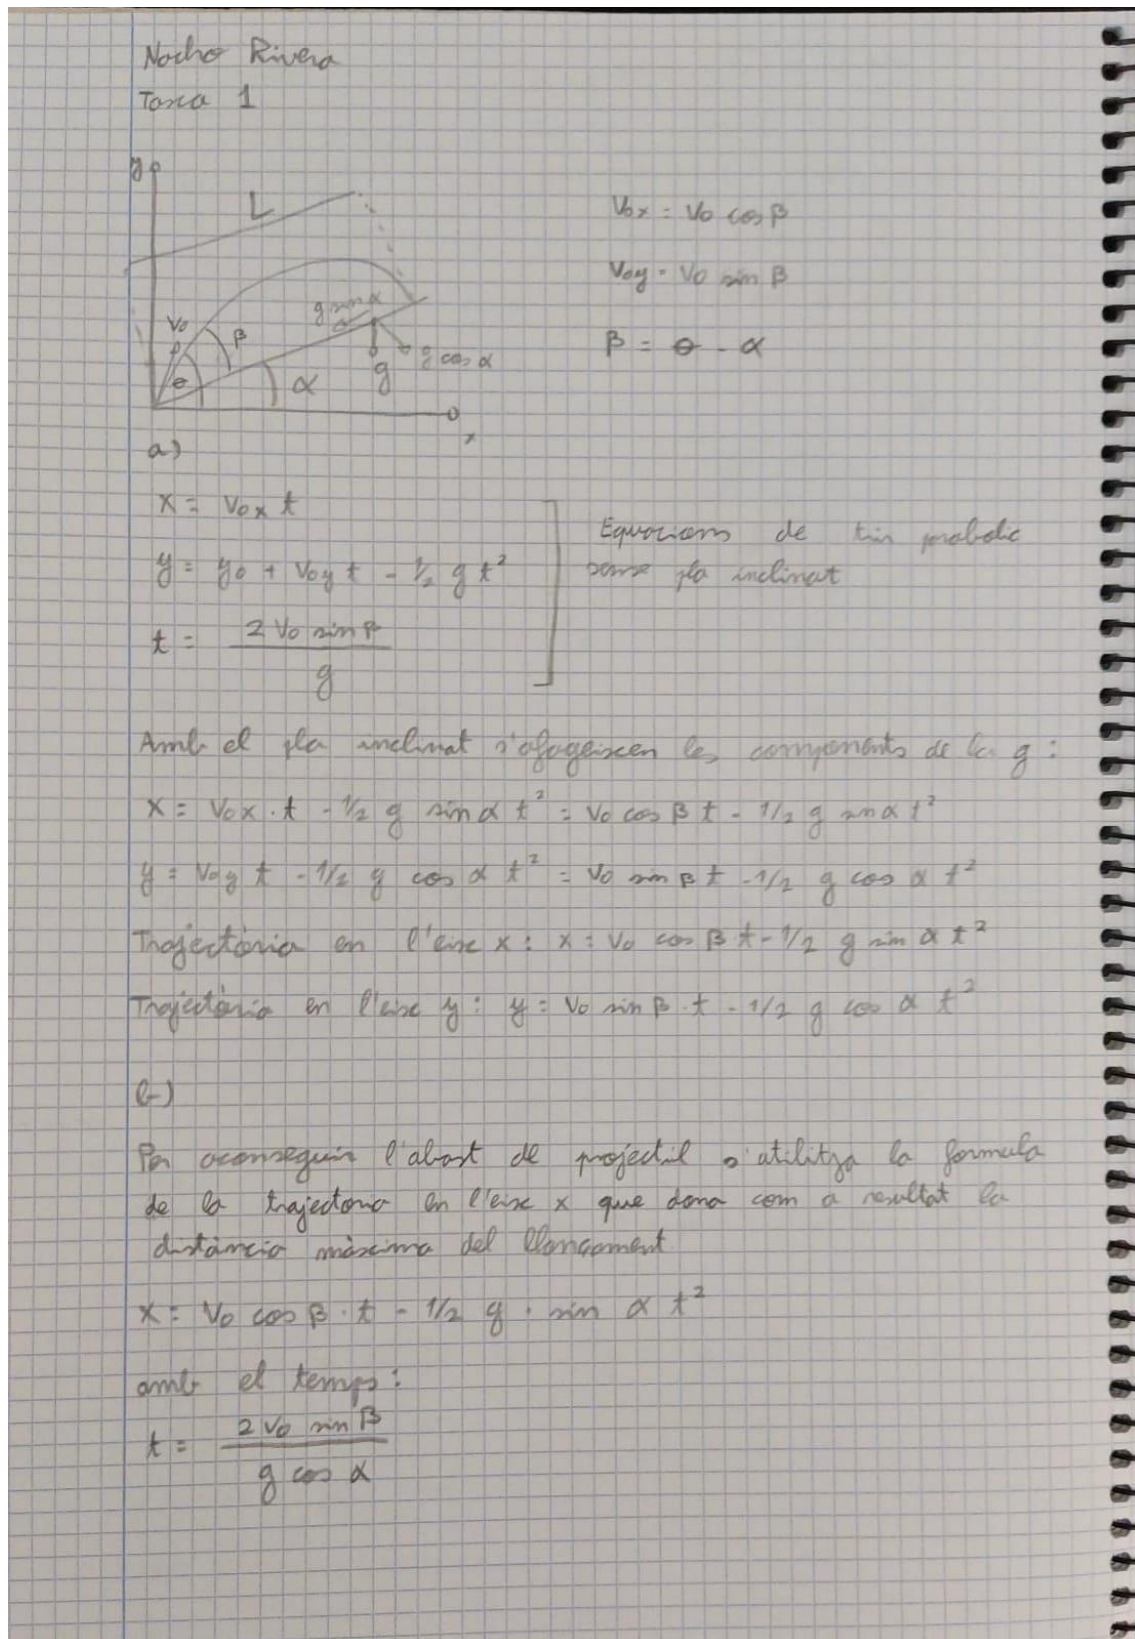 Nacho Rivera
Tasca 1
y
L
Vox = Vo cos β
Voy = Vo sin β
β = θ - α
Vo
θ
β
g sin α
g
g cos α
α
x
a)
x = Vox t
y = yo + Voy t - 1/2 g t²
t = 2 Vo sin β / g
Equacions de tir parabolic
sense pla inclinat
Amb el pla inclinat s'afageixen les components de la g:
x = Vox · t - 1/2 g sin α t² = Vo cos β t - 1/2 g sin α t²
y = Voy t - 1/2 g cos α t² = Vo sin β t - 1/2 g cos α t²
Trajectòria en l'eix x: x = Vo cos β t - 1/2 g sin α t²
Trajectòria en l'eix y: y = Vo sin β · t - 1/2 g cos α t²
b)
Per aconseguir l'abast de projectil s'utilitza la formula
de la trajectoria en l'eix x que dona com a resultat la
distància màxima del llançament
x = Vo cos β · t - 1/2 g · sin α t²
amb el temps:
t = 2 Vo sin β / g cos α